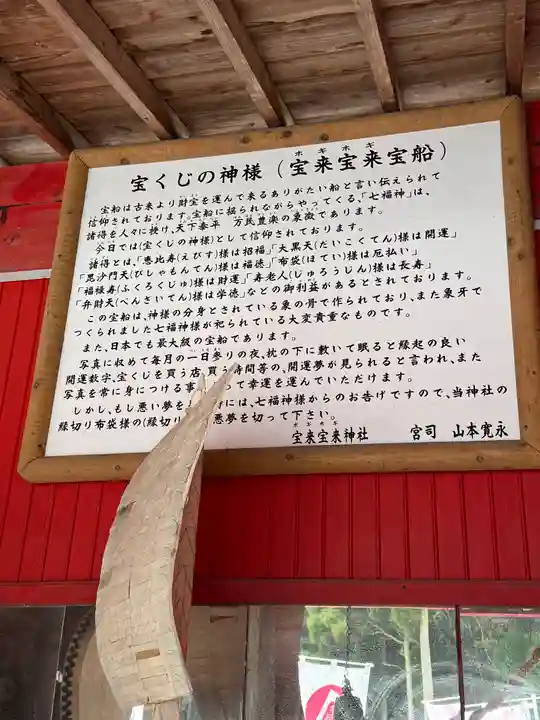 宝くじの神様(宝来宝来宝船)
ホキホキ
宝船は古来より財宝を運んで来るありがたい船と言い伝えられて
信仰されております。宝船に揺られながらやってくる、「七福神」は、
諸得を人々に授け、天下泰平 万民豊楽の象徴であります。
今日では(宝くじの神様)として信仰されております。
諸得とは、「恵比寿(えびす)様は招福」「大黒天(だいこくてん)様は開運」
「毘沙門天(びしゃもんてん)様は福徳」「布袋(ほてい)様は厄払い」
「福禄寿(ふくろくじゅ)様は財運」「寿老人(じゅろうじん)様は長寿」
「弁財天(べんざいてん)様は学徳」などの御利益があるとされております。
この宝船は、神様の分身とされている象の骨で作られており、また象牙で
つくられました七福神様が祀られている大変貴重なものです。
また、日本でも最大級の宝船であります。
写真に収めて毎月の一日参りの夜、枕の下に敷いて眠ると縁起の良い
開運数字、宝くじを買う店、買う時間等の、開運夢が見られると言われ、また
写真を常に身につける事 って幸運を運んでいただけます。
しかし、もし悪い夢を には、七福神様からのお告げですので、当神社の
縁切り布袋様の(縁切り 悪夢を切って下さい。
ホキホキ
宝来宝来神社 宮司 山本寛永